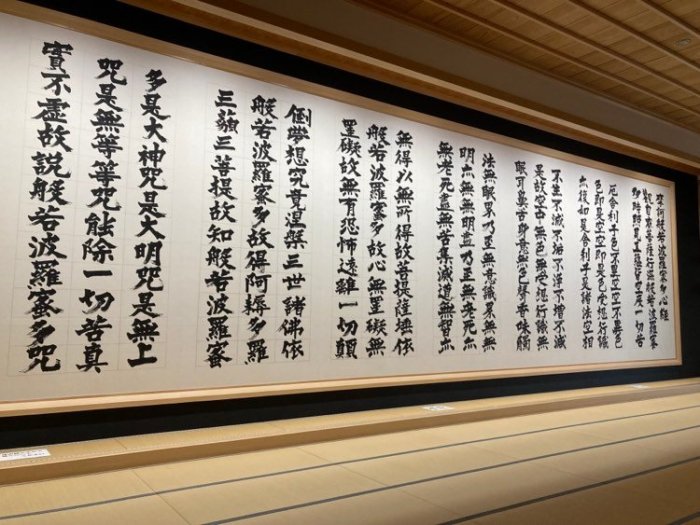 摩訶般若波羅蜜多心經
観自在菩薩行深般若波羅蜜
多時照見五蘊皆空度一切苦
厄舍利子色不異空空不異色
色即是空空即是色受想行識
亦復如是舍利子是諸法空相
不生不滅不垢不淨不增不減
是故空中無色無受想行識無
眼耳鼻舌身意無色聲香味觸
法無眼界乃至無意識界無無
明亦無無明盡乃至無老死亦
無老死盡無苦集滅道無智亦
無得以無所得故菩提薩埵依
般若波羅蜜多故心無罣礙無
罣礙故無有恐怖遠離一切顛
倒夢想究竟涅槃三世諸佛依
般若波羅蜜多故得阿耨多羅
三藐三菩提故知般若波羅蜜
多是大神咒是大明咒是無上
咒是無等等咒能除一切苦真
實不虛故説般若波羅蜜多咒